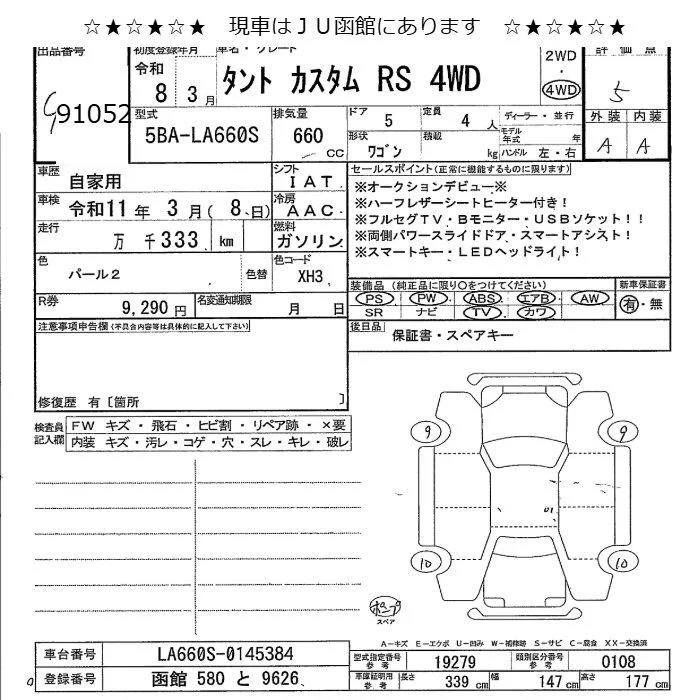 ☆★☆★☆★ 現車はJU函館にあります ☆★☆★☆★
出品番号 初度登録年月 車名・グレード 2WD・4WD 評価点
令和 8 3月 タント カスタム RS 4WD 5
91052 型式 排気量 ドア 5 定員 4人 ディーラー・並行 外装 内装
5BA-LA660S 660 CC 形状 ワゴン 積載 kg モデル年式 年 ハンドル 左・右 A A
車歴 自家用 シフト IAT セールスポイント(正常に機能するものに限ります)
車検 令和11年 3月( 8、日) 冷房 AAC
※オークションデビュー※
※ハーフレザーシートヒーター付き!
※フルセグTV・Bモニター・USBソケット!!
※両側パワースライドドア・スマートアシスト!
※スマートキー・LEDヘッドライト!
走行 万 千333 km 燃料 ガソリン
色 パール2 色替 色コード XH3
装備品(純正品に限り○をつけてください) 新車保証書
PS PW ABS エアB AW 有・無
SR ナビ TV カワ
R券 9,290円 名変通知期限 月 日
後日品 保証書・スペアキー
注意事項申告欄(不具合内容等は具体的に記入して下さい)
修復歴 有〔箇所 〕
検査員記入欄 FW キズ・飛石・ヒビ割・リペア跡・×要
内装 キズ・汚レ・コゲ・穴・スレ・キレ・破レ
9 9
10 10
スペア
A-キズ E-エクボ U-凹み W-補修跡 S-サビ C-腐食 XX-交換済
車台番号 LA660S-0145384 型式指定番号 参考 19279 類別区分番号 参考 0108
登録番号 函館 580 と 9626 車庫証明用 参考 長さ 339 cm 幅 147 cm 高さ 177 cm